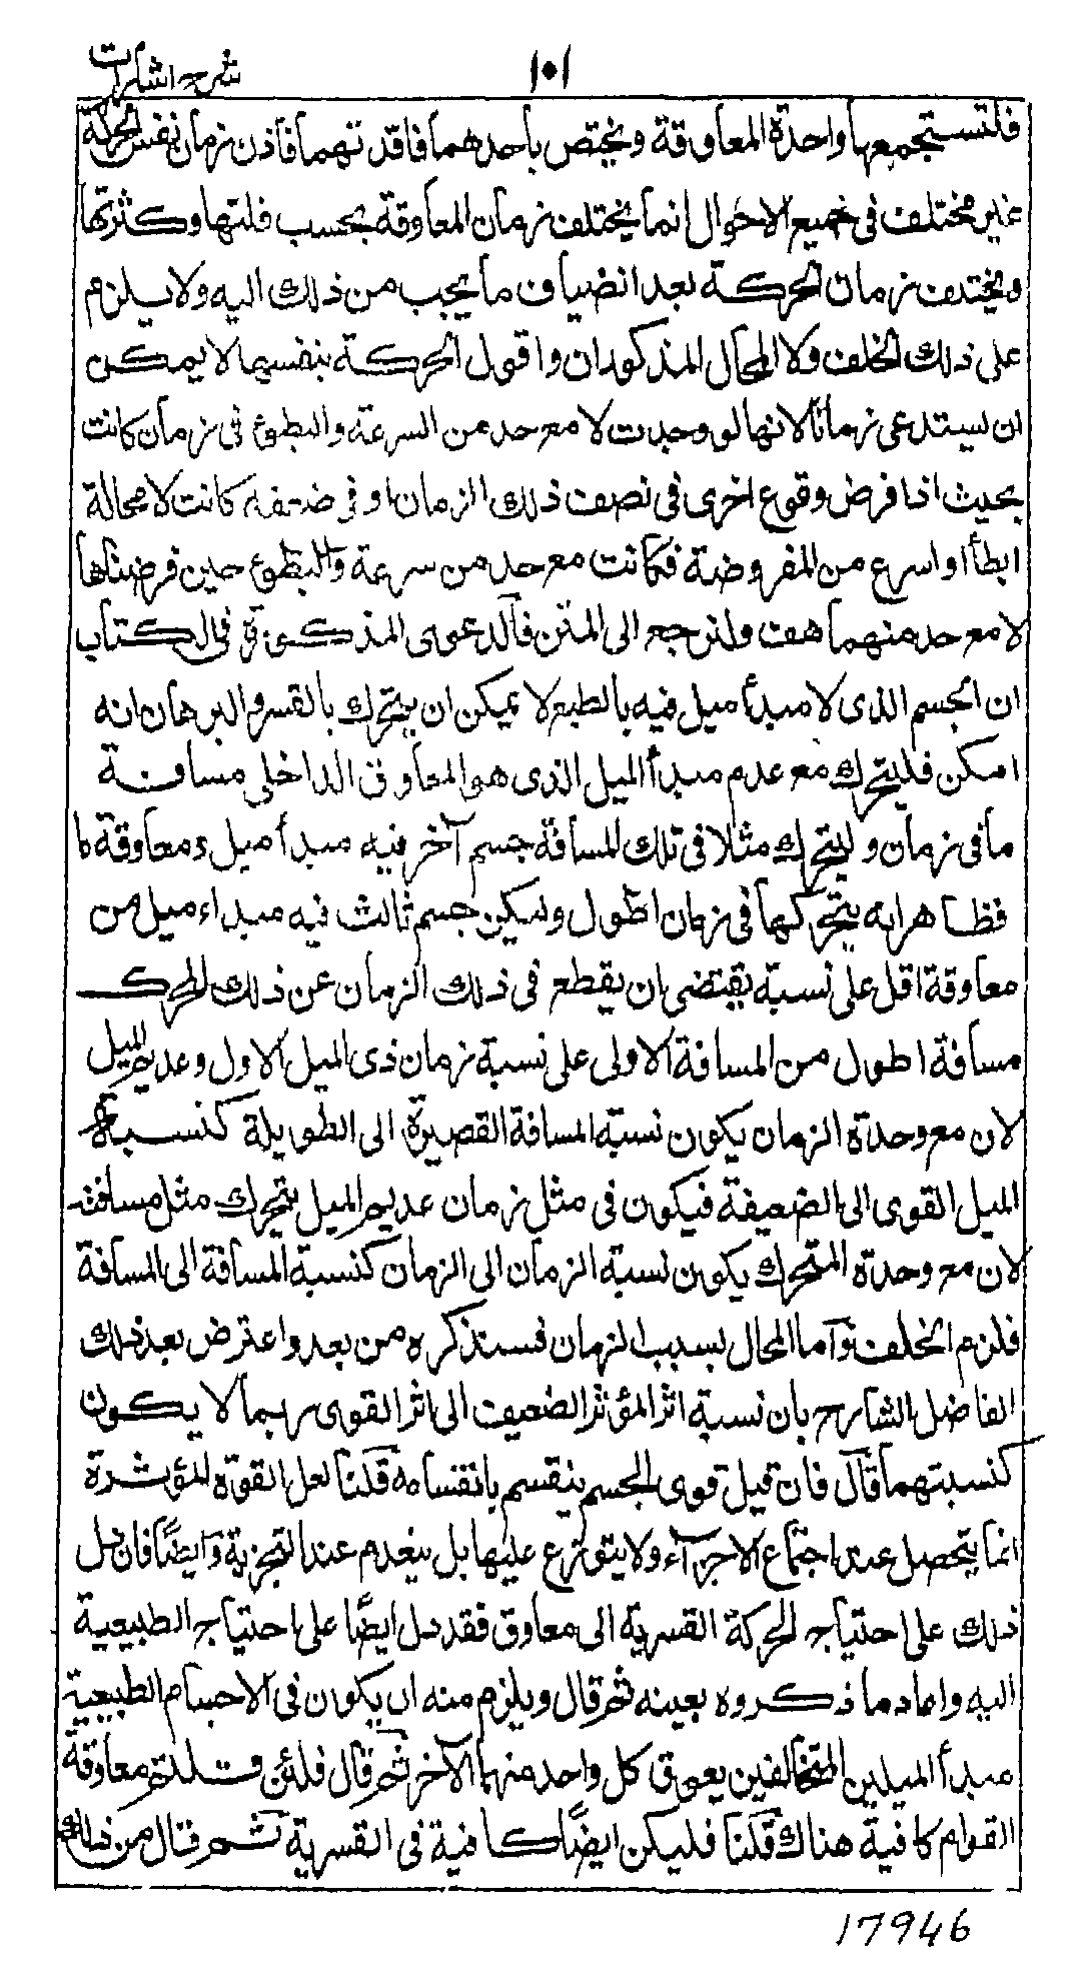 شرح اشارات
١٠١
فلتستجمعها واحدة المعاوقة ويختص باحدهما فاقد تهما فاذن زمان نفس الحركة
غير مختلف في جميع الاحوال انما يختلف زمان المعاوقة بحسب قلتها وكثرتها
ويختلف زمان الحركة بعد انضياف ما يجب من ذلك اليه ولا يلزم
على ذلك الخلف ولا المحال المذكوران واقول الحركة بنفسها لا يمكن
ان يستدعى زمانا لانها لو وجدت لا مع حد من السرعة والبطوء في زمان كانت
بحيث اذا فرض وقوع اخرى في نصف ذلك الزمان او في ضعفه كانت لا محالة
ابطأ او اسرع من المفروضة فكانت مع حد من سرعة والبطوء حين فرضناها
لا مع حد منهما هف ولنرجع الى المتن فالدعوى المذكورة في الكتاب
ان الجسم الذى لا مبدأ ميل فيه بالطبع لا يمكن ان يتحرك بالقسر والبرهان انه
امكن فليتحرك مع عدم مبدأ الميل الذى هو المعاوق الداخلى مسافة
ما في زمان وليتحرك مثلا في تلك المسافة جسم آخر فيه مبدأ ميل ومعاوقة ما
فظاهر انه يتحركها في زمان اطول وليكن جسم ثالث فيه مبداء ميل من
معاوقة اقل على نسبة يقتضى ان يقطع في ذلك الزمان عن ذلك المحرك
مسافة اطول من المسافة الاولى على نسبة زمان ذى الميل الاول وعديم الميل
لان مع وحدة الزمان يكون نسبة المسافة القصيرة الى الطويلة كنسبة
الميل القوى الى الضعيفة فيكون في مثل زمان عديم الميل يتحرك مثل مسافته
لان مع وحدة المتحرك يكون نسبة الزمان الى الزمان كنسبة المسافة الى المسافة
فلزم الخلف واما المحال بسبب الزمان فسنذكره من بعد واعترض بعد ذلك
الفاضل الشارح بان نسبة اثر المؤثر الضعيف الى اثر القوى ربما لا يكون
كنسبتهما قال فان قيل قوى الجسم ينقسم بانقسامه قلنا لعل القوة المؤثرة
انما يتحصل عند اجتماع الاجزآء ولا يتوزع عليها بل ينعدم عند التجزية وايضًا فان دل
ذلك على احتياج الحركة القسرية الى معاوق فقد دل ايضًا على احتياج الطبيعية
اليه واعاد ما ذكروه بعينه ثم قال ويلزم منه ان يكون في الاجسام الطبيعية
مبدأ الميلين المتخالفين يعوق كل واحد منهما الآخر ثم قال فلئن قلتم معاوقة
القوام كافية هناك قلنا فليكن ايضًا كافية في القسرية ثم قال من ذلك
17946